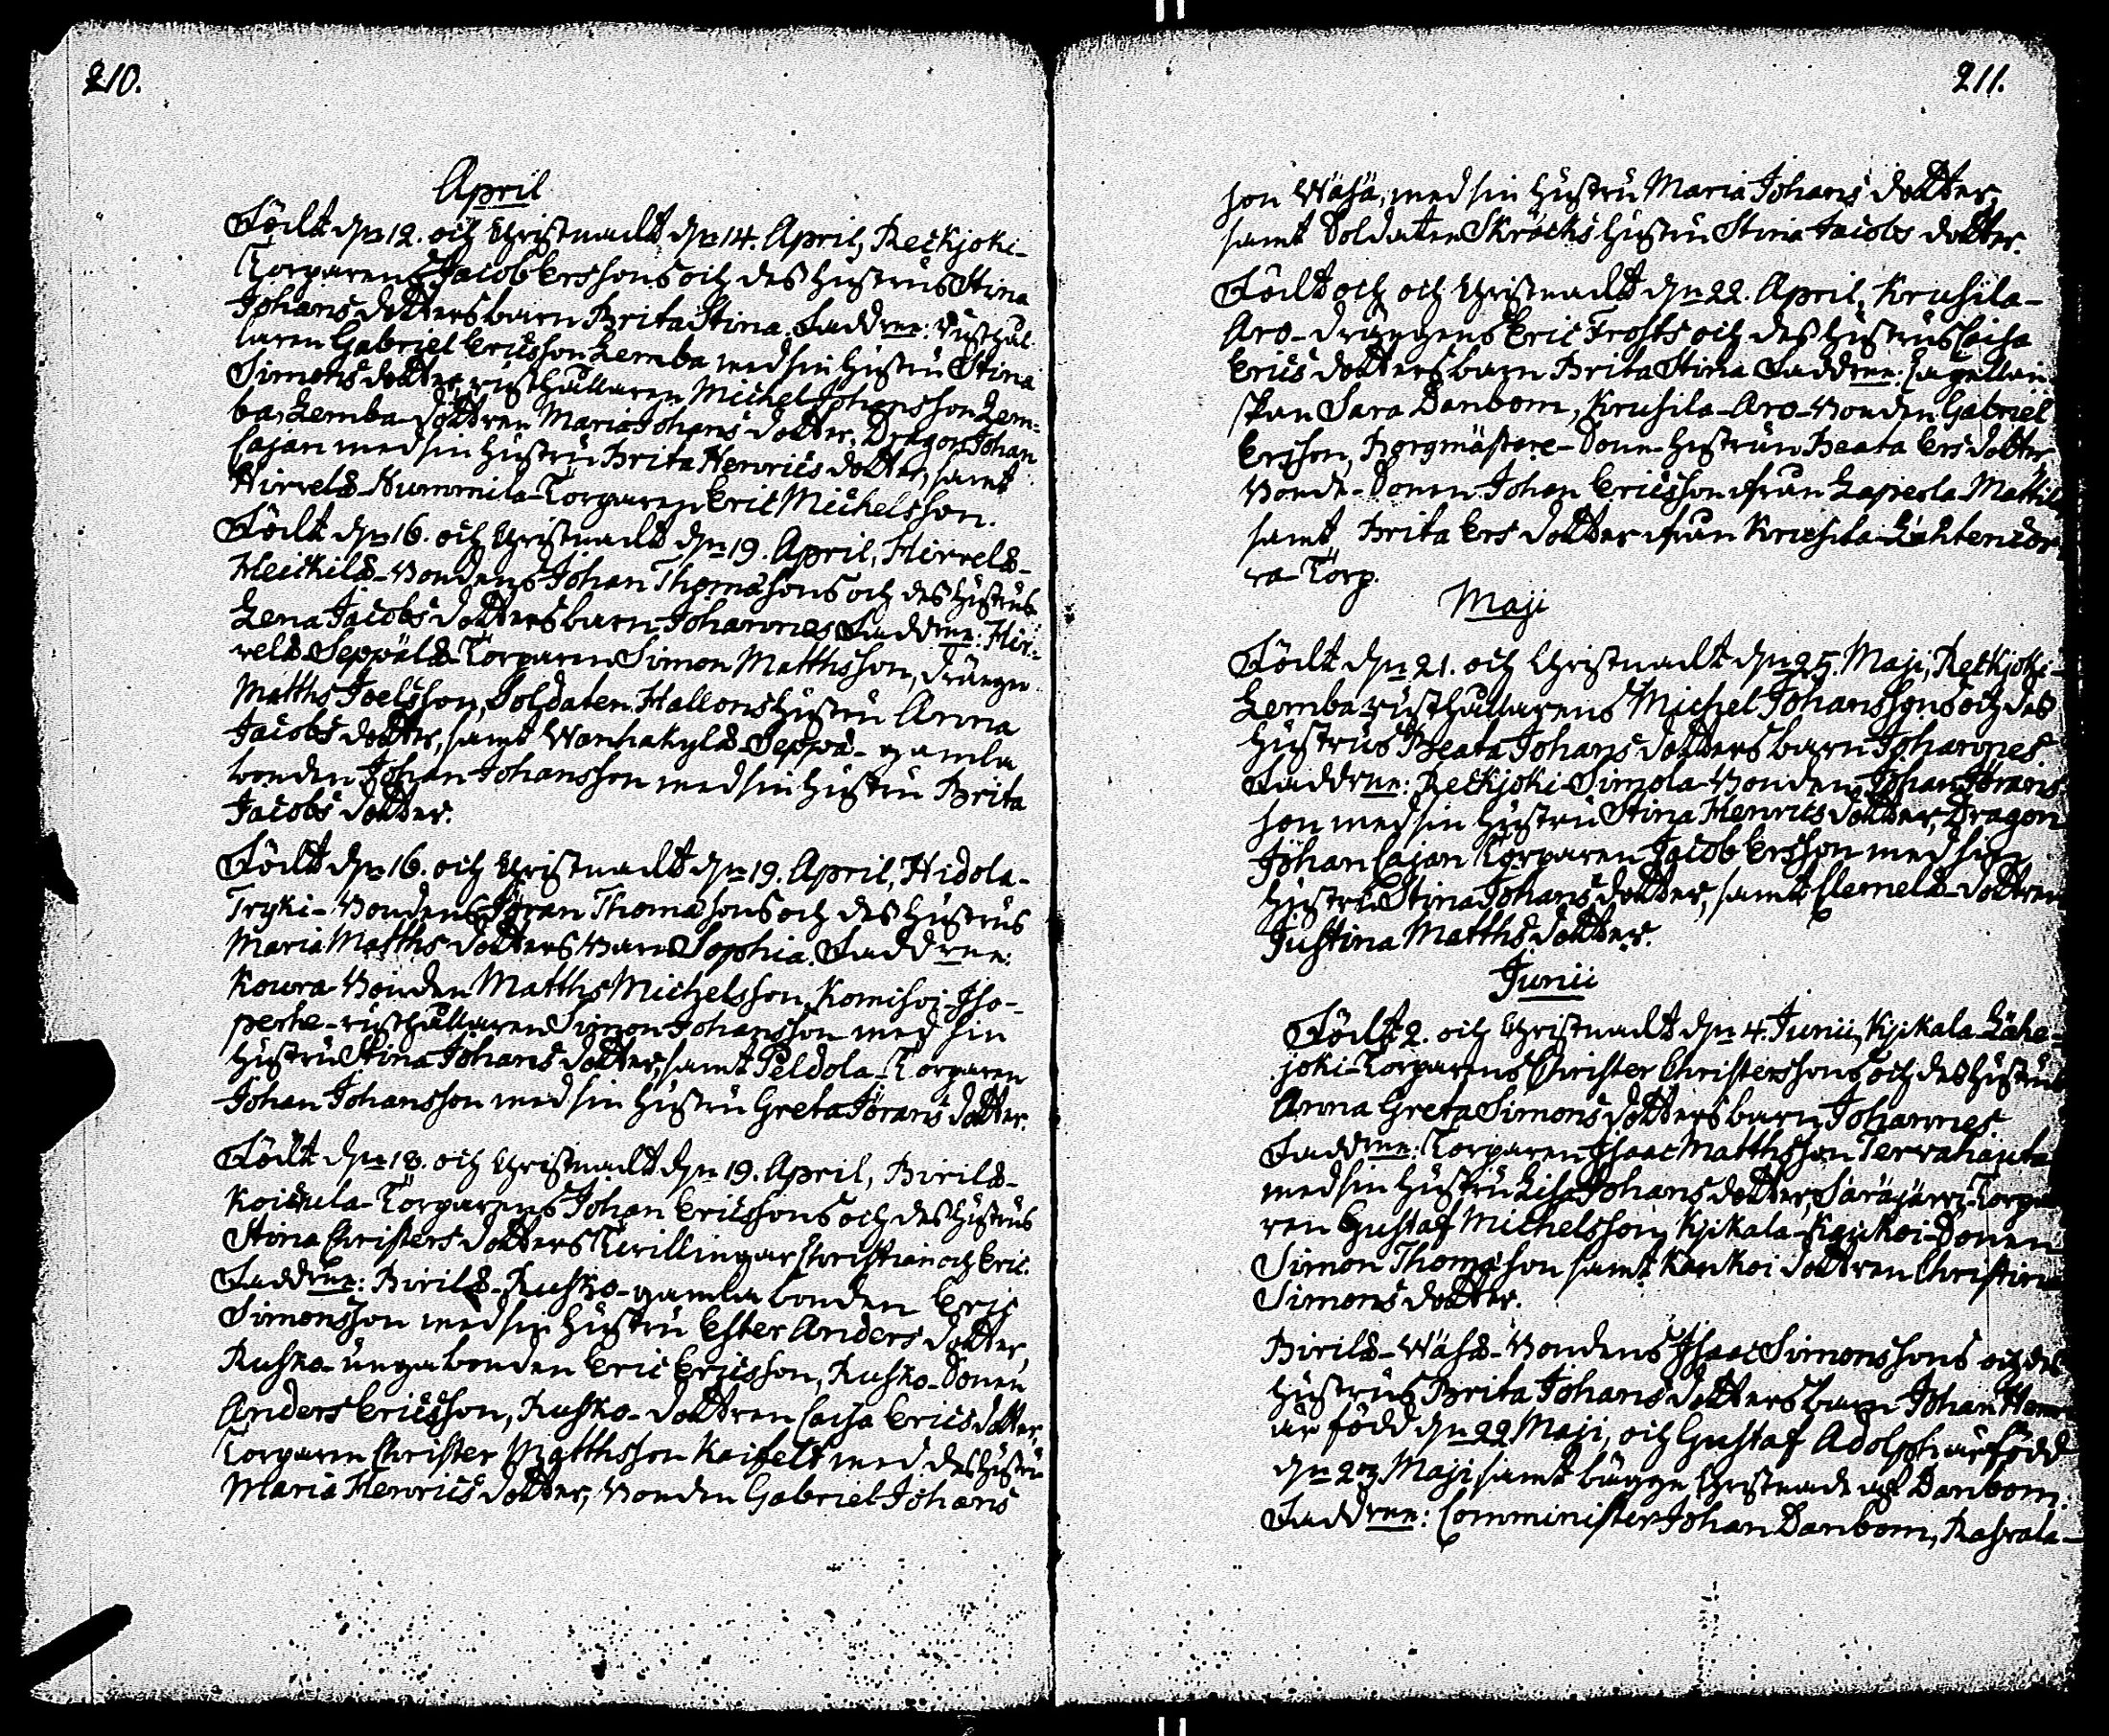 210.
April
Födt d:n 12. och Christnadt d:n 14. April, Reckjoki-
Torparens Jacob Erssons och des hustrus Stina
Johans dotters barn Brita Stina. Faddrne: Rusthål-
laren Gabriel Ericsson Lemba med sin hustru Stina
Simons dotter, rusthållaren Michel Johansson Lem-
ba, Lemba-dottren Maria Johans dotter, Dragon Johan
Cajan med sin hustru Brita Henrics dotter, samt
Hirvelä-Nummila-Torparen Eric Michelsson.
Födt d:n 16. och Christnadt d:n 19. April, Hirvelä-
Heickilä-bondens Johan Thomasons och des hustrus
Lena Jacobs dotters barn Johannes. Faddrne: Hir-
velä-Seppälä-Torparen Simon Matthsson, drängen
Matths Joelsson, Soldaten Hallons hustru Anna
Jacobs dotter, samt Wanhakylä-Seppä-gamla
bonden Johan Johansson med sin hustru Brita
Jacobs dotter.
Födt d:n 16. och Christnadt d:n 19. April, Hidola-
Tryki-bondens Jöran Thomasons och des hustrus
Maria Matths dotters barn Sophia. Faddrne:
Kowra-bonden Matths Michelsson, Komisoi-Iso-
perhe-rusthållaren Simon Johansson med sin
hustru Stina Johans dotter, samt Peldola-Torparen
Johan Johansson med sin hustru Greta Jörans dotter.
Födt d:n 18. och Christnadt d:n 19. April, Birilä-
Koickula-Torparens Johan Ericssons och des hustrus
Stina Christers dotters Twillingar Christian och Eric.
Faddrne: Birilä-Rusko-gamla bonden Eric
Simonsson med sin hustru Ester Anders dotter,
Rusko-unga bonden Eric Ericsson, Rusko-Sonen
Anders Ericsson, Rusko-dottren Caisa Erics dotter,
Torparen Christer Matthsson Kaifelt med des hustru
Maria Henrics dotter, bonden Gabriel Johans
211.
son Wähä, med sin hustru Maria Johans dotter,
samt Soldaten Skräcks hustru Stina Jacobs dotter.
Födt och och Christnadt d:n 22. April, Krusila-
Aro-drängens Eric Frosts och des hustrus Caisa
Erics dotters barn Brita Stina. Faddrne: Capellan-
skan Sara Danbom, Krusila-Aro-bonden Gabriel
Ersson, Borgmästare-Sone-hustrun Beata Ers dotter,
bonde-Sonen Johan Ericsson från Laperla Mattila
samt Brita Ers dotter från Krusila-Lähtencor-
ra-Torp.
Maji
Födt d:n 21. och Christnadt d:n 25. Maji, Reckjoki-
Lemba-rusthållarens Michel Johanssons och des
hustrus Beata Johans dotters barn Johannes.
Faddrne: Reckjoki-Simola-bonden Johan Jörans
son med sin hustru Stina Henrics dotter, Dragon
Johan Cajan Torparen Jacob Ersson med sin
hustru Stina Johans dotter, samt Clemelä-dottren
Justina Matths dotter.
Junii
Födt 2. och Christnadt d:n 4. Junii, Kyikala-Lähe-
joki-Torparens Christer Christerssons och des hustrus
Anna Greta Simons dotters barn Johannes.
Faddrne: Torparen Isaac Matthsson Tervahauta
med sin hustru Lisa Johans dotter, Säräjärvi-Torpa-
ren Gustaf Michelsson, Kyikala-Kaukoi-Sonen
Simon Thomasson samt Kaukoi dottren Christina
Simons dotter.
Birilä-Wähä-bondens Isaac Simonssons och des
hustrus Brita Johans dotters barn Johan Hen-
är född d:n 22 Maji, och Gustaf Adolph är född
d:n 23 Maji samt bägge Christnade af Danbom.
Faddrne: Comminister Johan Danbom, Rahvala-